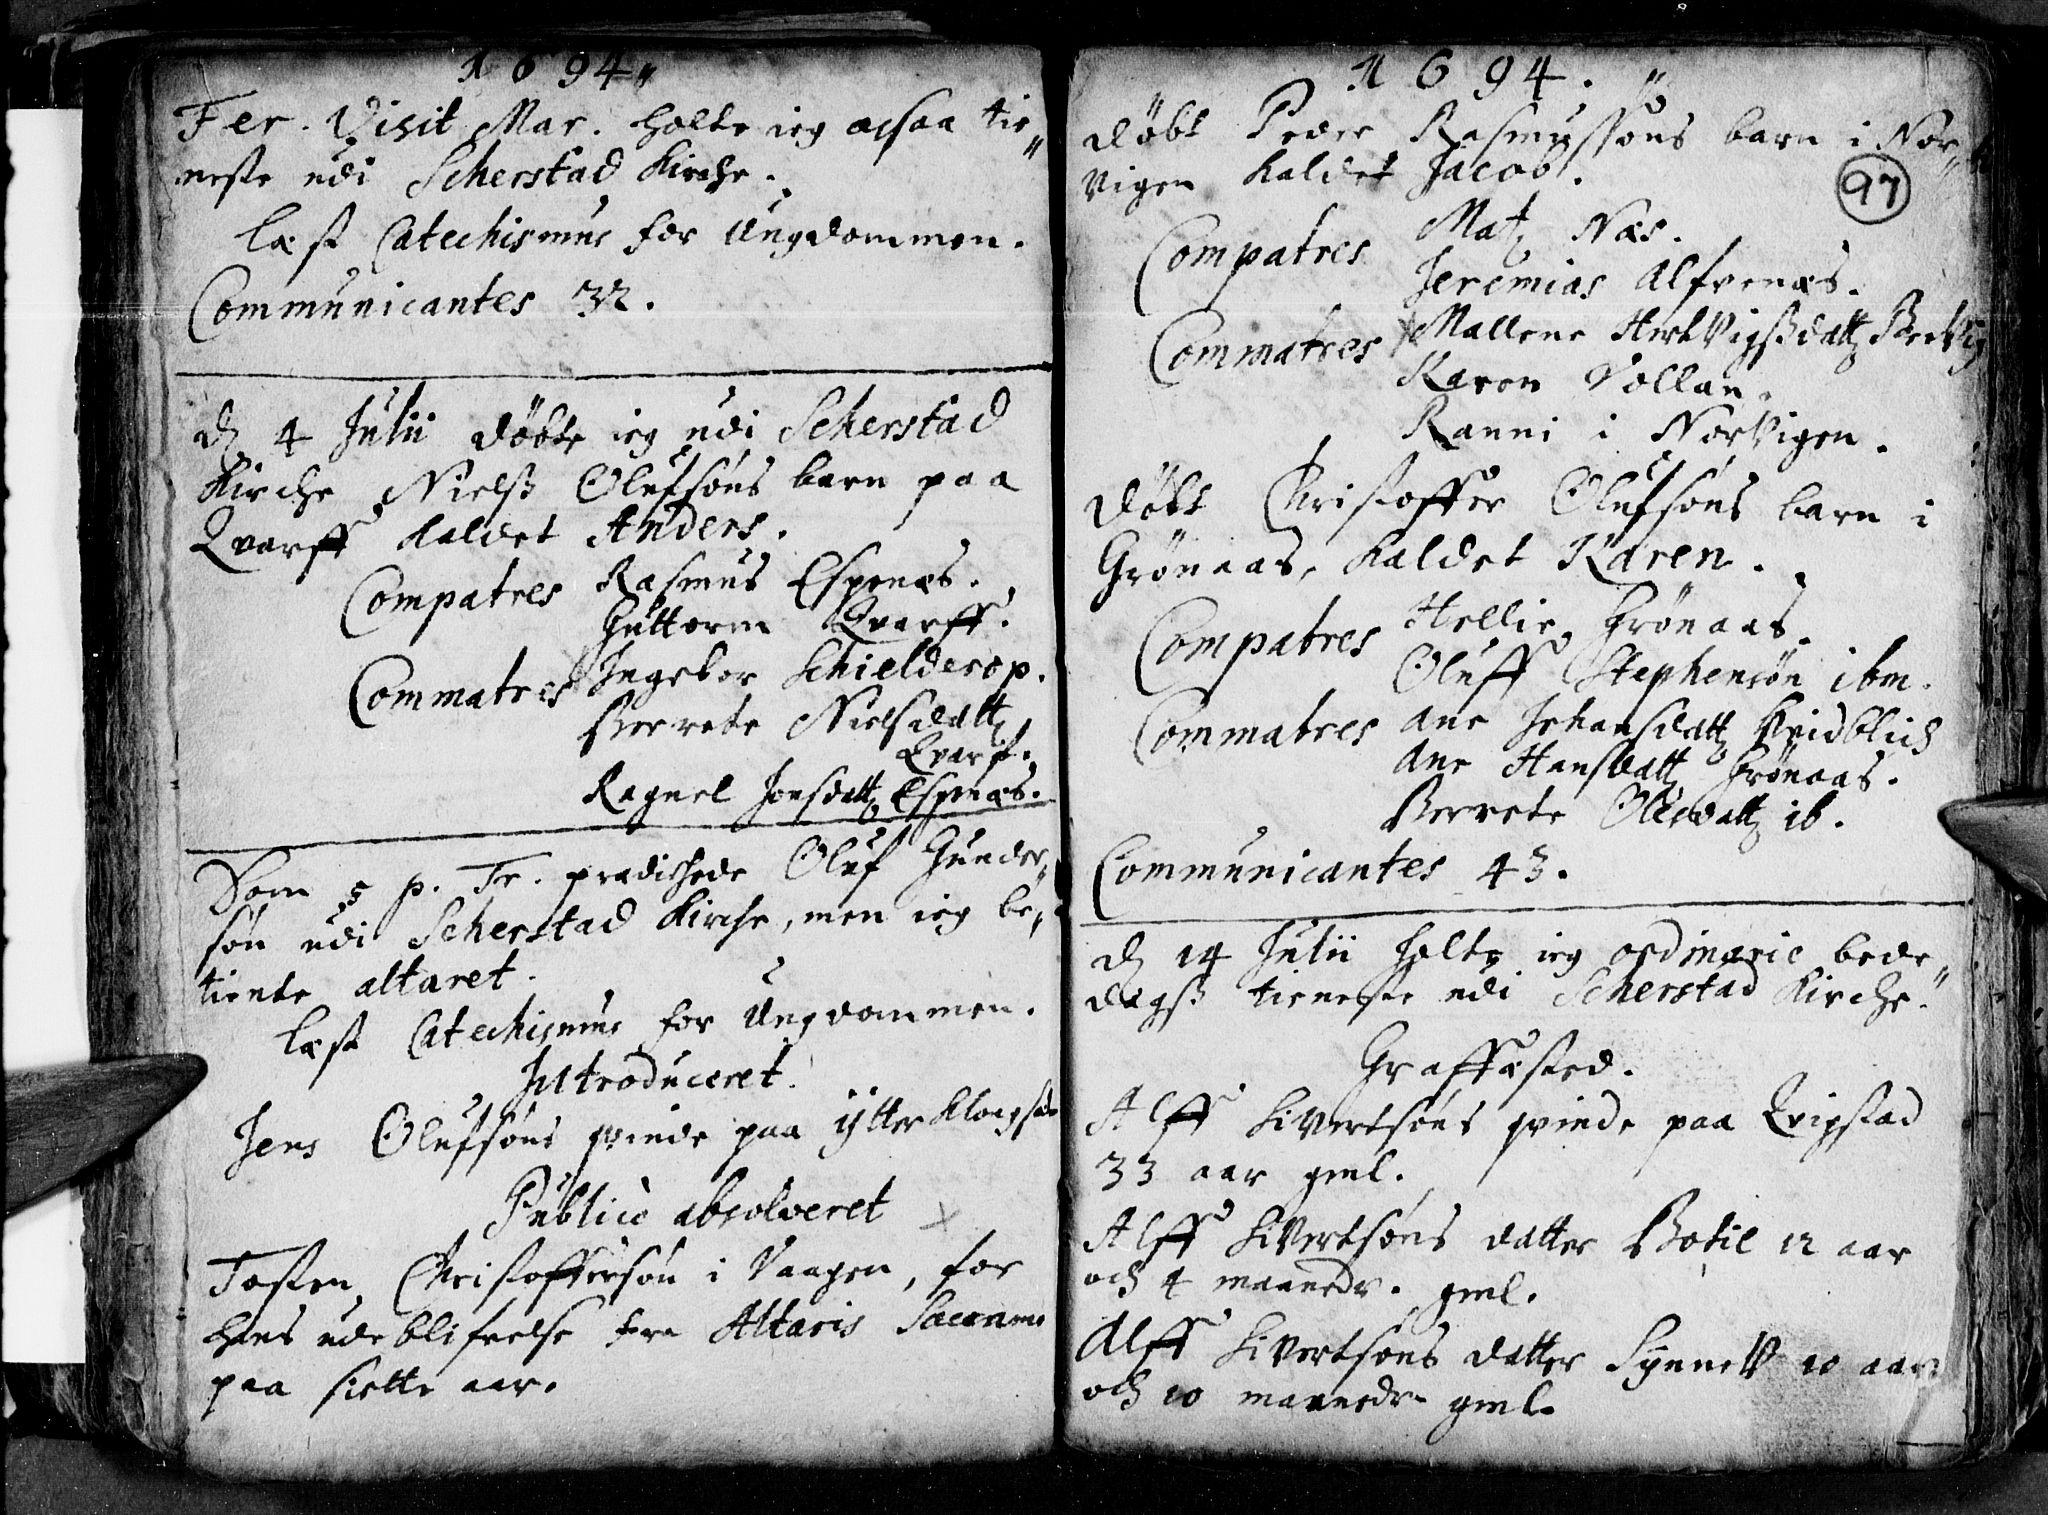 1694„
Fer. Visit. Mar. holte ieg ocsaa tie„
neste udi Scherstad Kirche.
Læst Catechismus for Ungdommen.
Communicantes 32.
d 4 Julii döbte ieg udi Scherstad
Kirche Nielß Olufsöns barn paa
Qvarff kaldet Anders.
Compatres Rasmus Espenæs.
Guttorm Qvarff.
Commatres Ingebor Schielderop.
Berrete Nielsdatt
Qvarf.
Ragnel Jonsdatt Espenæs.
Dom 5 p. Tr. prædichede Oluf Gunder„
sön udi Scherstad Kirche, men ieg be„
tiente altaret.
Læst Catechismus for Ungdommen.
Introduceret.
Jens Olufsöns qvinde paa ytter
Publicè absolveret
Tosten Christoffersön i Vaagen, for
hans udeblifvelse fra Altaris Sacram
paa siette aar.
1694.„
döbt Peder Rasmussöns barn i Nor„
vigen kaldet Jacob.
97
Compatres Mat Næs.
Jeremias Alfvenæs.
Commatres Mallene Hertvigßdatt
Karen Vollan.
Ranni i Norvigen.
döbt Christoffer Olufsöns barn i
Grönaas, kaldet Karen.
Compatres Hellie Grönaas.
Oluff Stephensön ibm.
Commatres Ane Johansdatt Hvidblich
Ane Hansdatt Grönaas.
Berrete Olesdatt ib.
Communicantes 43.
d 14 Julii holte ieg ordinarie bede„
dagß tieneste udi Scherstad Kirche.
Graffæsted.
Alff Sivertsöns qvinde paa
33 aar gml.
Alff Sivertsöns datter Botil 12 aar
och 4 maaneder. gml.
Alff Sivertsöns datter Synnev 10 aar
och 10 maaneder gml.